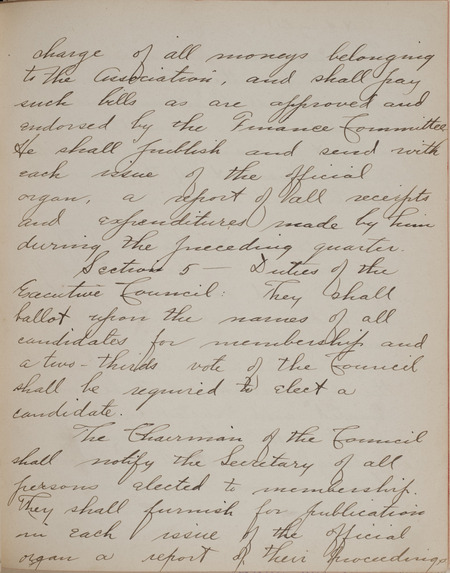 charge of all moneys belonging
to the Association, and shall pay
such bills as are approved and
endorsed by the Finance Committee.
He shall publish and send with
each issue of the official
organ, a report of all receipts
and expenditures made by him
during the preceding quarter.
Section 5 — Duties of the
Executive Council: They shall
ballot upon the names of all
candidates for membership and
a two-thirds vote of the Council
shall be required to elect a
candidate.
The Chairman of the Council
shall notify the Secretary of all
persons elected to membership.
They shall furnish for publication
in each issue of the official
organ a report of their proceedings